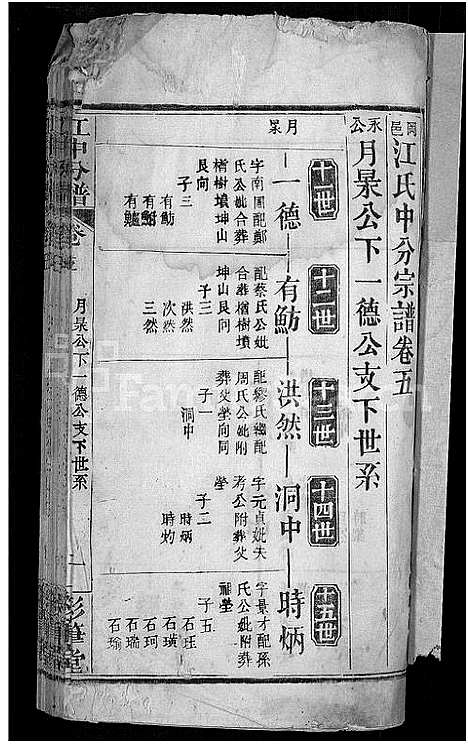 岡邑
江氏中分宗譜卷五
永公
月杲公下一德公支下世系
月杲
十一世
十二世
十三世
十四世
十五世
一德
有魴
洪然
洞中
時炳
字南圃配鄭
氏公妣合葬
櫧樹墳坤山
艮向
子三
有魴
有
有
配蔡氏公妣
合葬櫧樹墳
坤山艮向
子三
洪然
次然
三然
配繆氏繼配
周氏公妣附
葬父塋向同
子一
洞中
字元貞妣失
考公附葬父
塋
子二
時炳
時灼
字景才配孫
氏公妣附葬
祖塋
子五
石珏
石璜
石珂
石瑞
石瑜
江中分譜
卷五
月杲公下一德公支下世系
一
彭華堂